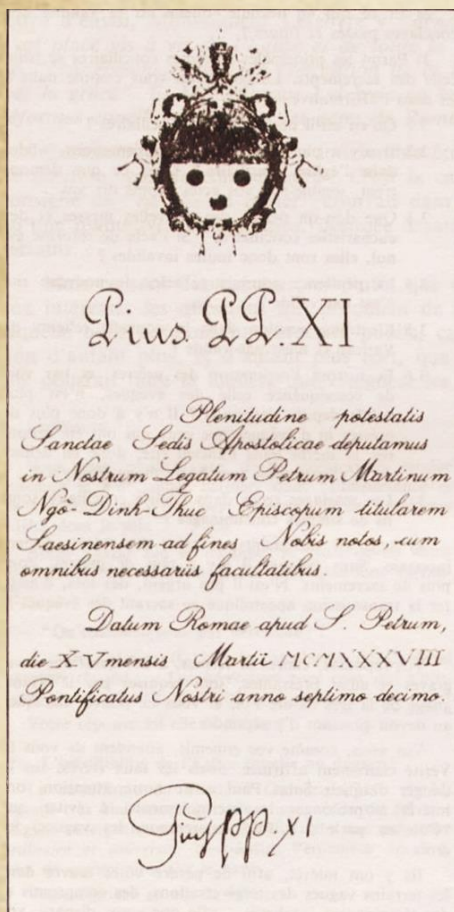 Pius PP. XI
Plenitudine potestatis
Sanctae Sedis Apostolicae deputamus
in Nostrum Legatum Petrum Martinum
Ngô-Dinh-Thuc Episcopum titularem
Saesinensem ad fines Nobis notos, cum
omnibus necessariis facultatibus.
Datum Romae apud S. Petrum,
die XV mensis Martii MCMXXXVIII
Pontificatus Nostri anno septimo decimo.
Pius pp. XI